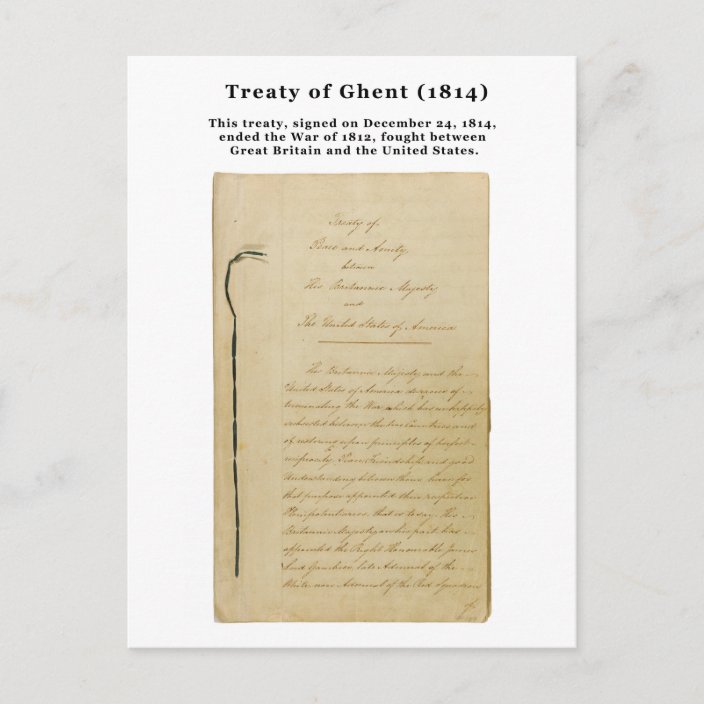 Treaty of Ghent (1814)
This treaty, signed on December 24, 1814,
ended the War of 1812, fought between
Great Britain and the United States.
Treaty of
Peace and Amity
between
His Britannic Majesty
and
The United States of America
His Britannic Majesty and the
United States of America desirous of
terminating the War which has unhappily
subsisted between the two Countries and
of restoring upon principles of perfect
reciprocity Peace, Friendship, and good
Understanding between them, have for
that purpose appointed their respective
Plenipotentiaries, that is to say, His
Britannic Majesty on his part has
appointed the Right Honourable James
Lord Gambier, late Admiral of the
White now Admiral of the Red Squadron
of